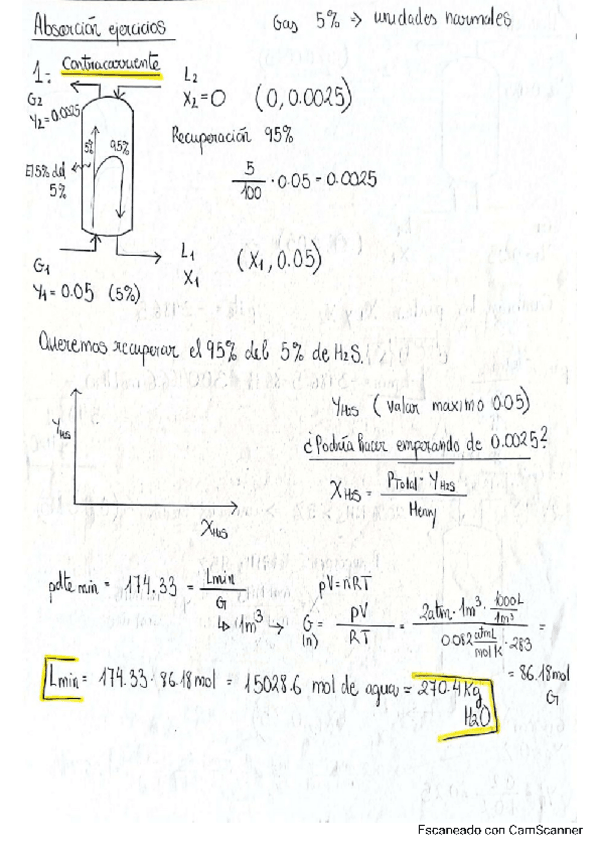 Absorción ejercicios
Gas 5% => unidades normales
1: Contracorriente
G2
Y2=0.0025
L2
X2=0 (0,0.0025)
Recuperación 95%
5% 95%
El 5% del
5%
5/100 · 0.05 = 0.0025
L1
X1
(X1, 0.05)
G1
Y1= 0.05 (5%)
Queremos recuperar el 95% del 5% de H2S.
YH2S
XH2S
YH2S (valor maximo 0.05)
¿Podría hacer empezando de 0.0025?
XH2S = PTotal · YH2S / Henry
pdte min = 174.33 = Lmin / G
↳ 1m³ →
pV=nRT
G (n) = pV / RT = 2atm · 1m³ · 1000L/1m³ / 0.082 atmL/mol K · 283 =
= 86.18mol
G
Lmin = 174.33 · 86.18mol = 15028.6 mol de agua = 270.4 Kg
H2O
Escaneado con CamScanner